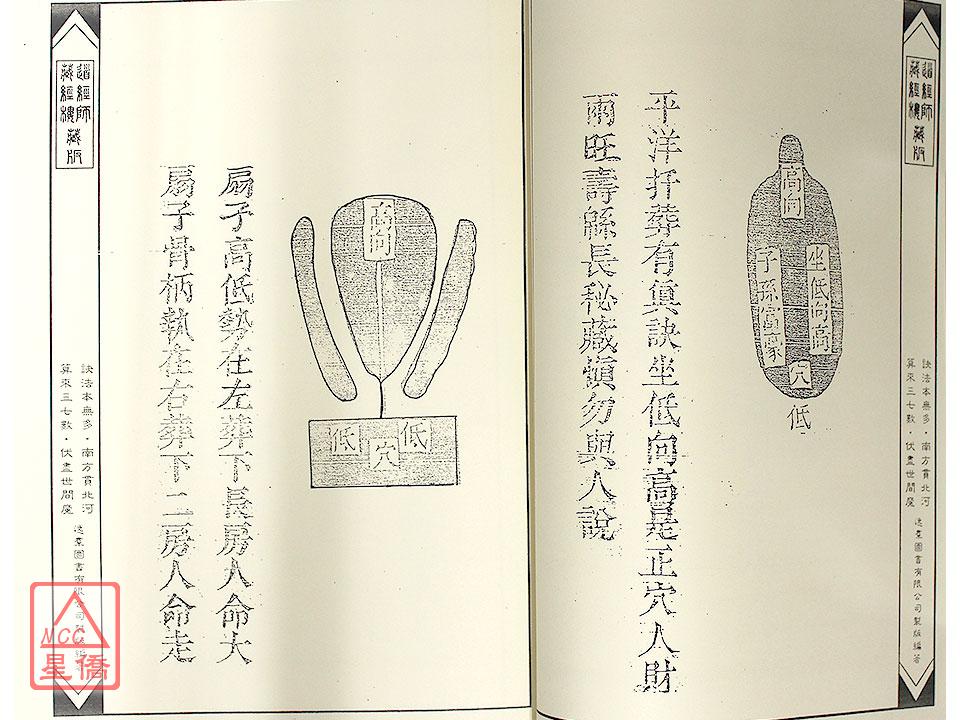 道經師
藏經樓藏版
訣法本無多·南方貫北河
算來三七數·伏盡世間魔
逸羣圖書有限公司製版編著
高向
坐低向高
子孫富豪
穴
低
平洋扦葬有眞訣坐低向高是正穴人財
兩旺壽綿長秘藏慎勿與人說
高向
低
穴
低
扇子高低勢在左葬下長房人命大
扇子骨柄執在右葬下二房人命走
道經師
藏經樓藏版
訣法本無多·南方貫北河
算來三七數·伏盡世間魔
逸羣圖書有限公司製版編著
NCC
星僑